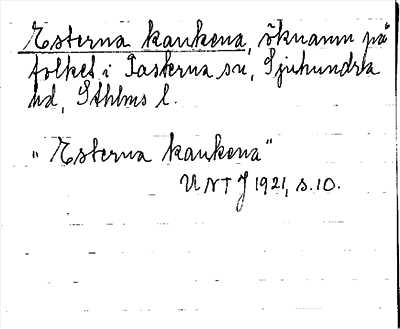 Esterna kaukena, öknamn på
folket i Fasterna sn, Sjuhundra
hd, Sthlms l.
"Esterna kaukena"
UNTJ 1921, s. 10.